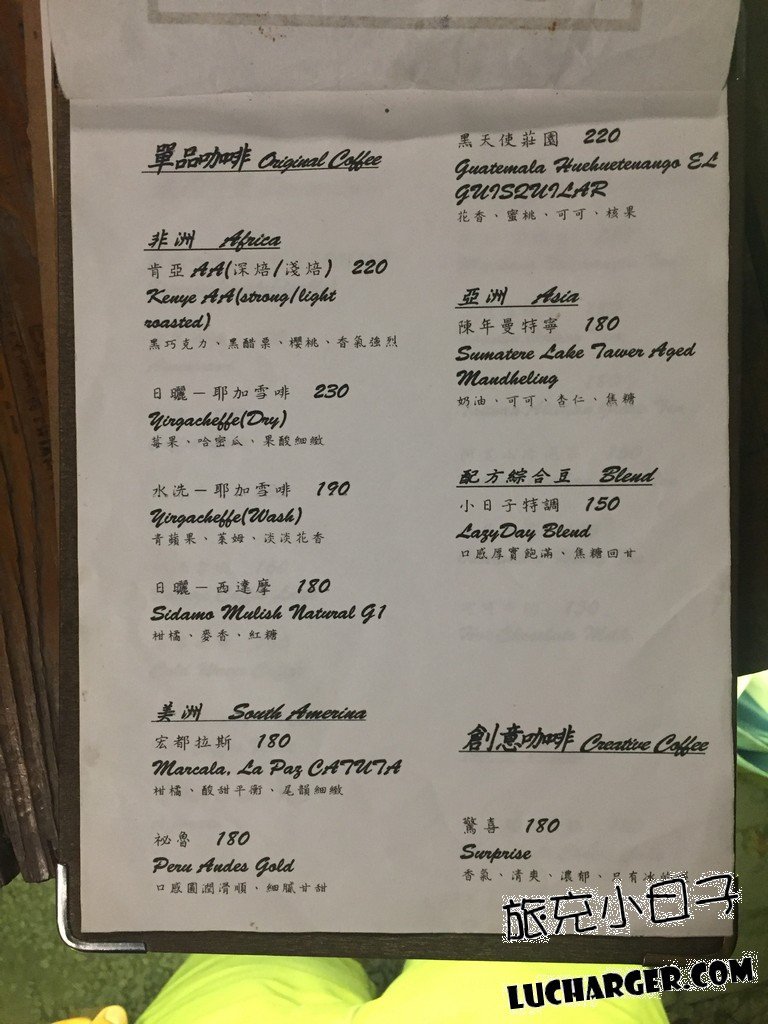 單品咖啡 Original Coffee
非洲 Africa
肯亞AA(深焙/淺焙) 220
Kenye AA(strong/light
roasted)
黑巧克力、黑醋栗、櫻桃、香氣強烈
日曬－耶加雪啡 230
Yirgacheffe(Dry)
莓果、哈密瓜、果酸細緻
水洗－耶加雪啡 190
Yirgacheffe(Wash)
青蘋果、萊姆、淡淡花香
日曬－西達摩 180
Sidamo Mulish Natural G1
柑橘、麥香、紅糖
美洲 South Amerina
宏都拉斯 180
Marcala, La Paz CATUTA
柑橘、酸甜平衡、尾韻細緻
祕魯 180
Peru Andes Gold
口感圓潤滑順、細膩甘甜
黑天使莊園 220
Guatemala Huehuetenango EL
GUISQUILAR
花香、蜜桃、可可、核果
亞洲 Asia
陳年曼特寧 180
Sumatere Lake Tawer Aged
Mandheling
奶油、可可、杏仁、焦糖
配方綜合豆 Blend
小日子特調 150
LazyDay Blend
口感厚實飽滿、焦糖回甘
創意咖啡 Creative Coffee
驚喜 180
Surprise
香氣、清爽、濃郁、只有冰
旅充小日子
LUCHARGER.COM